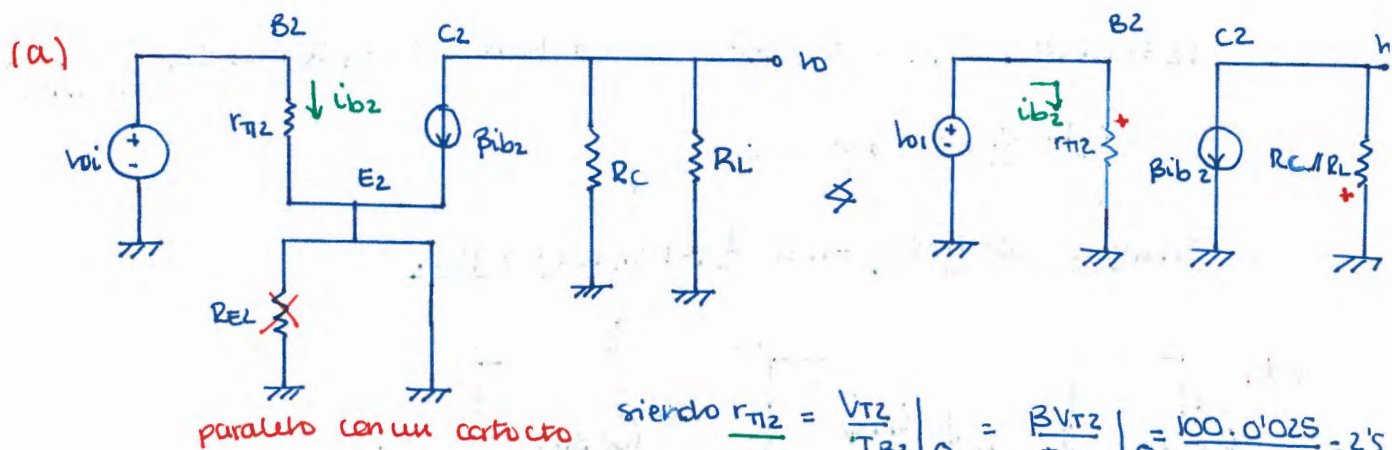 (a)
B2 C2 vo
voi + - rπ2 ib2 βib2 RC RL
E2
RE2
B2 C2
vo1 + - ib2 rπ2 + βib2 RC//RL +
paralelo con un cortocto
siendo rπ2 = VT2 / IB2 |Q = βVT2 / |Q = 100.0'025 = 2'5